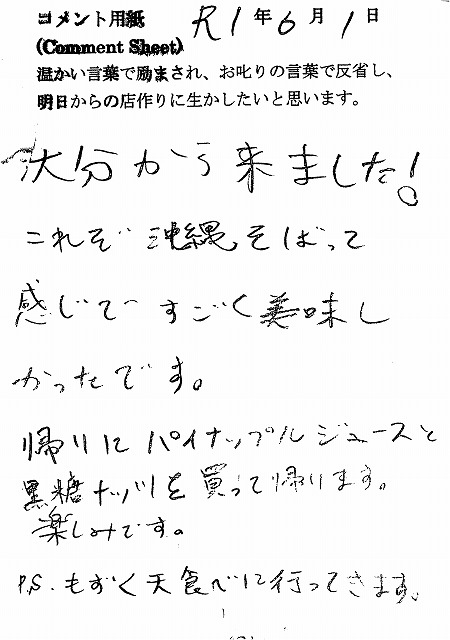 コメント用紙 R1年6月1日
(Comment Sheet)
温かい言葉で励まされ、お叱りの言葉で反省し、
明日からの店作りに生かしたいと思います。
大分から来ました!
これぞ沖縄そばって
感じですごく美味し
かったです。
帰りにパイナップルジュースと
黒糖ナッツを買って帰ります。
楽しみです。
P.S. もずく天食べに行ってきます。